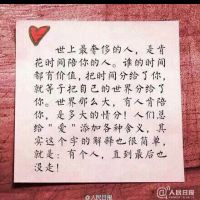 世上最奢侈的人，是肯
花时间陪你的人。谁的时间
都有价值，把时间分给了你，
就等于把自己的世界分给了
你。世界那么大，有人肯陪
你，是多大的情分！人们总
给“爱”添加各种含义，其
实这个字的解释也很简单，
就是：有个人，直到最后也
没走！
@人民日报
人民日报